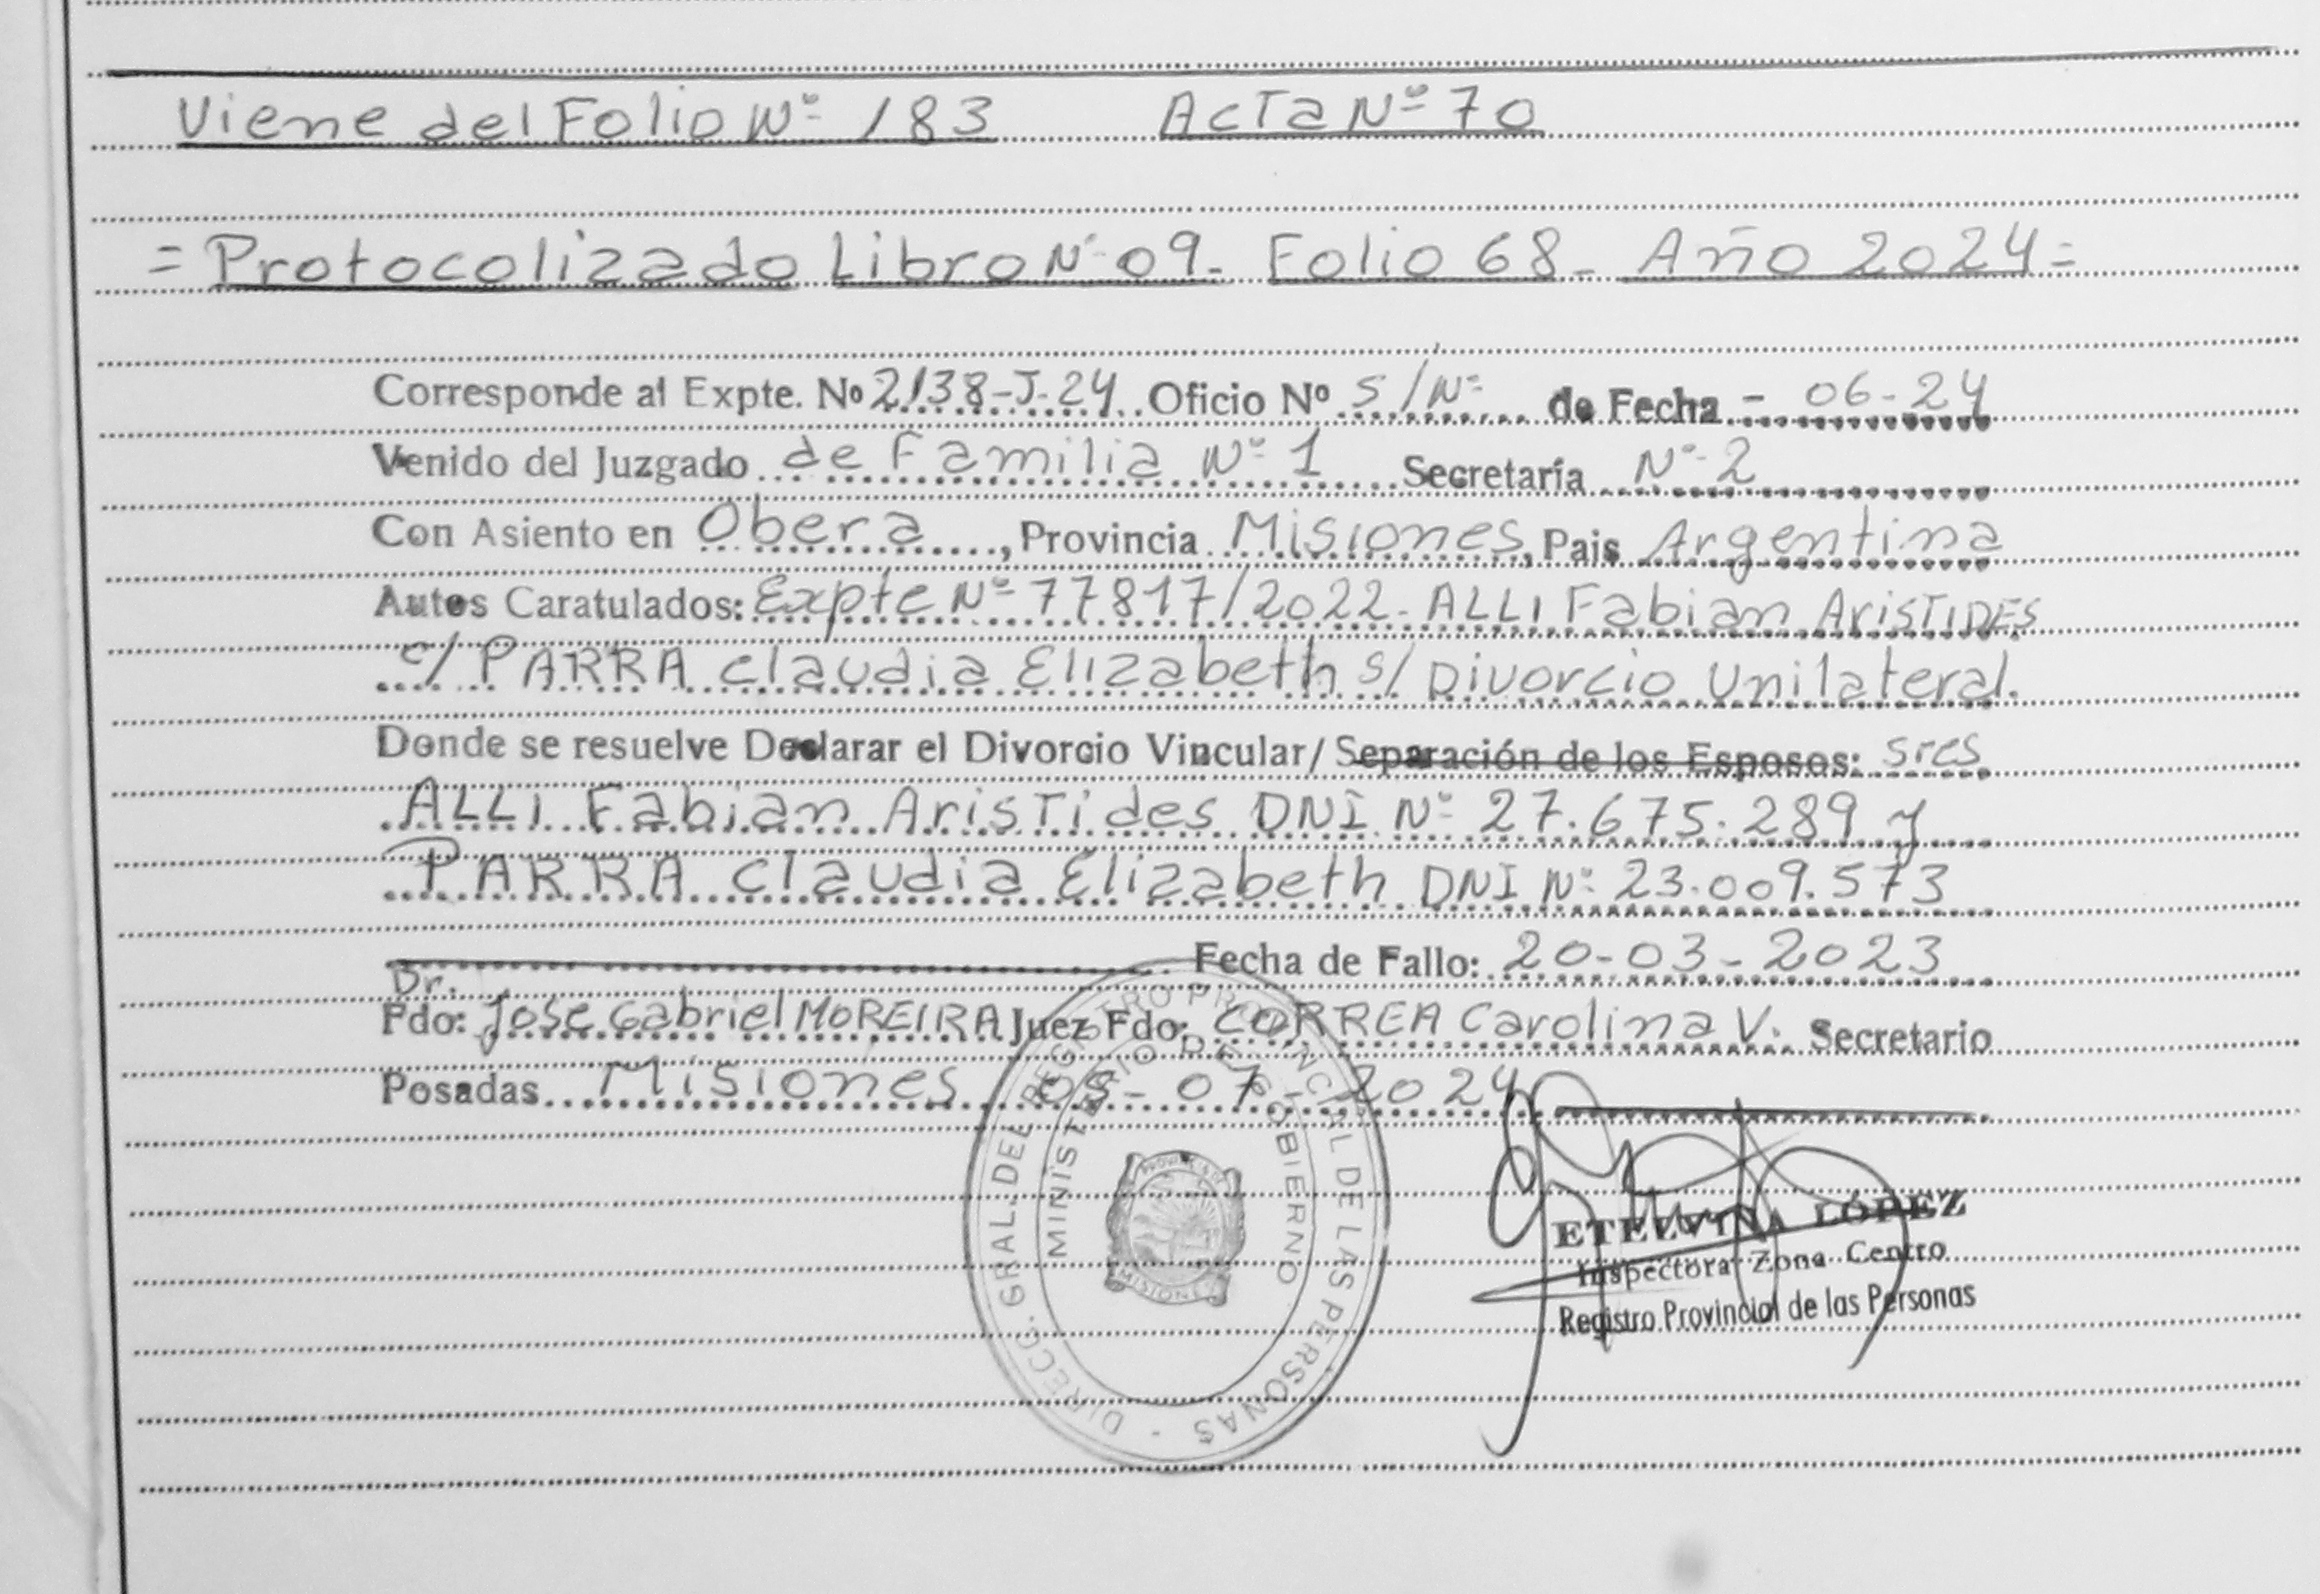 Viene del Folio Nº 183 Acta Nº 70
= Protocolizado Libro Nº 09 - Folio 68 - Año 2024 =
Corresponde al Expte. Nº 2138-J-24 Oficio Nº S/Nº de Fecha - 06-24
Venido del Juzgado de Familia Nº 1 Secretaría Nº 2
Con Asiento en Obera, Provincia Misiones, Pais Argentina
Autos Caratulados: Expte Nº 77817/2022 - ALLI Fabian ARISTIDES
c/ PARRA Claudia Elizabeth s/ Divorcio Unilateral.
Donde se resuelve Declarar el Divorcio Vincular/ Separación de los Esposos: sres
ALLI Fabian Aristides DNI Nº 27.675.289 y
PARRA Claudia Elizabeth DNI Nº 23.009.573
Fecha de Fallo: 20-03-2023
Dr.
Fdo: Jose Gabriel MOREIRA Juez Fdo: CORREA Carolina V. Secretario
Posadas Misiones 05-07-2024
DIRECC. GRAL. DEL REGISTRO PROVINCIAL DE LAS PERSONAS
MINISTERIO DE GOBIERNO
MISIONES
ETELVINA LÓPEZ
Inspectora Zona Centro
Registro Provincial de las Personas